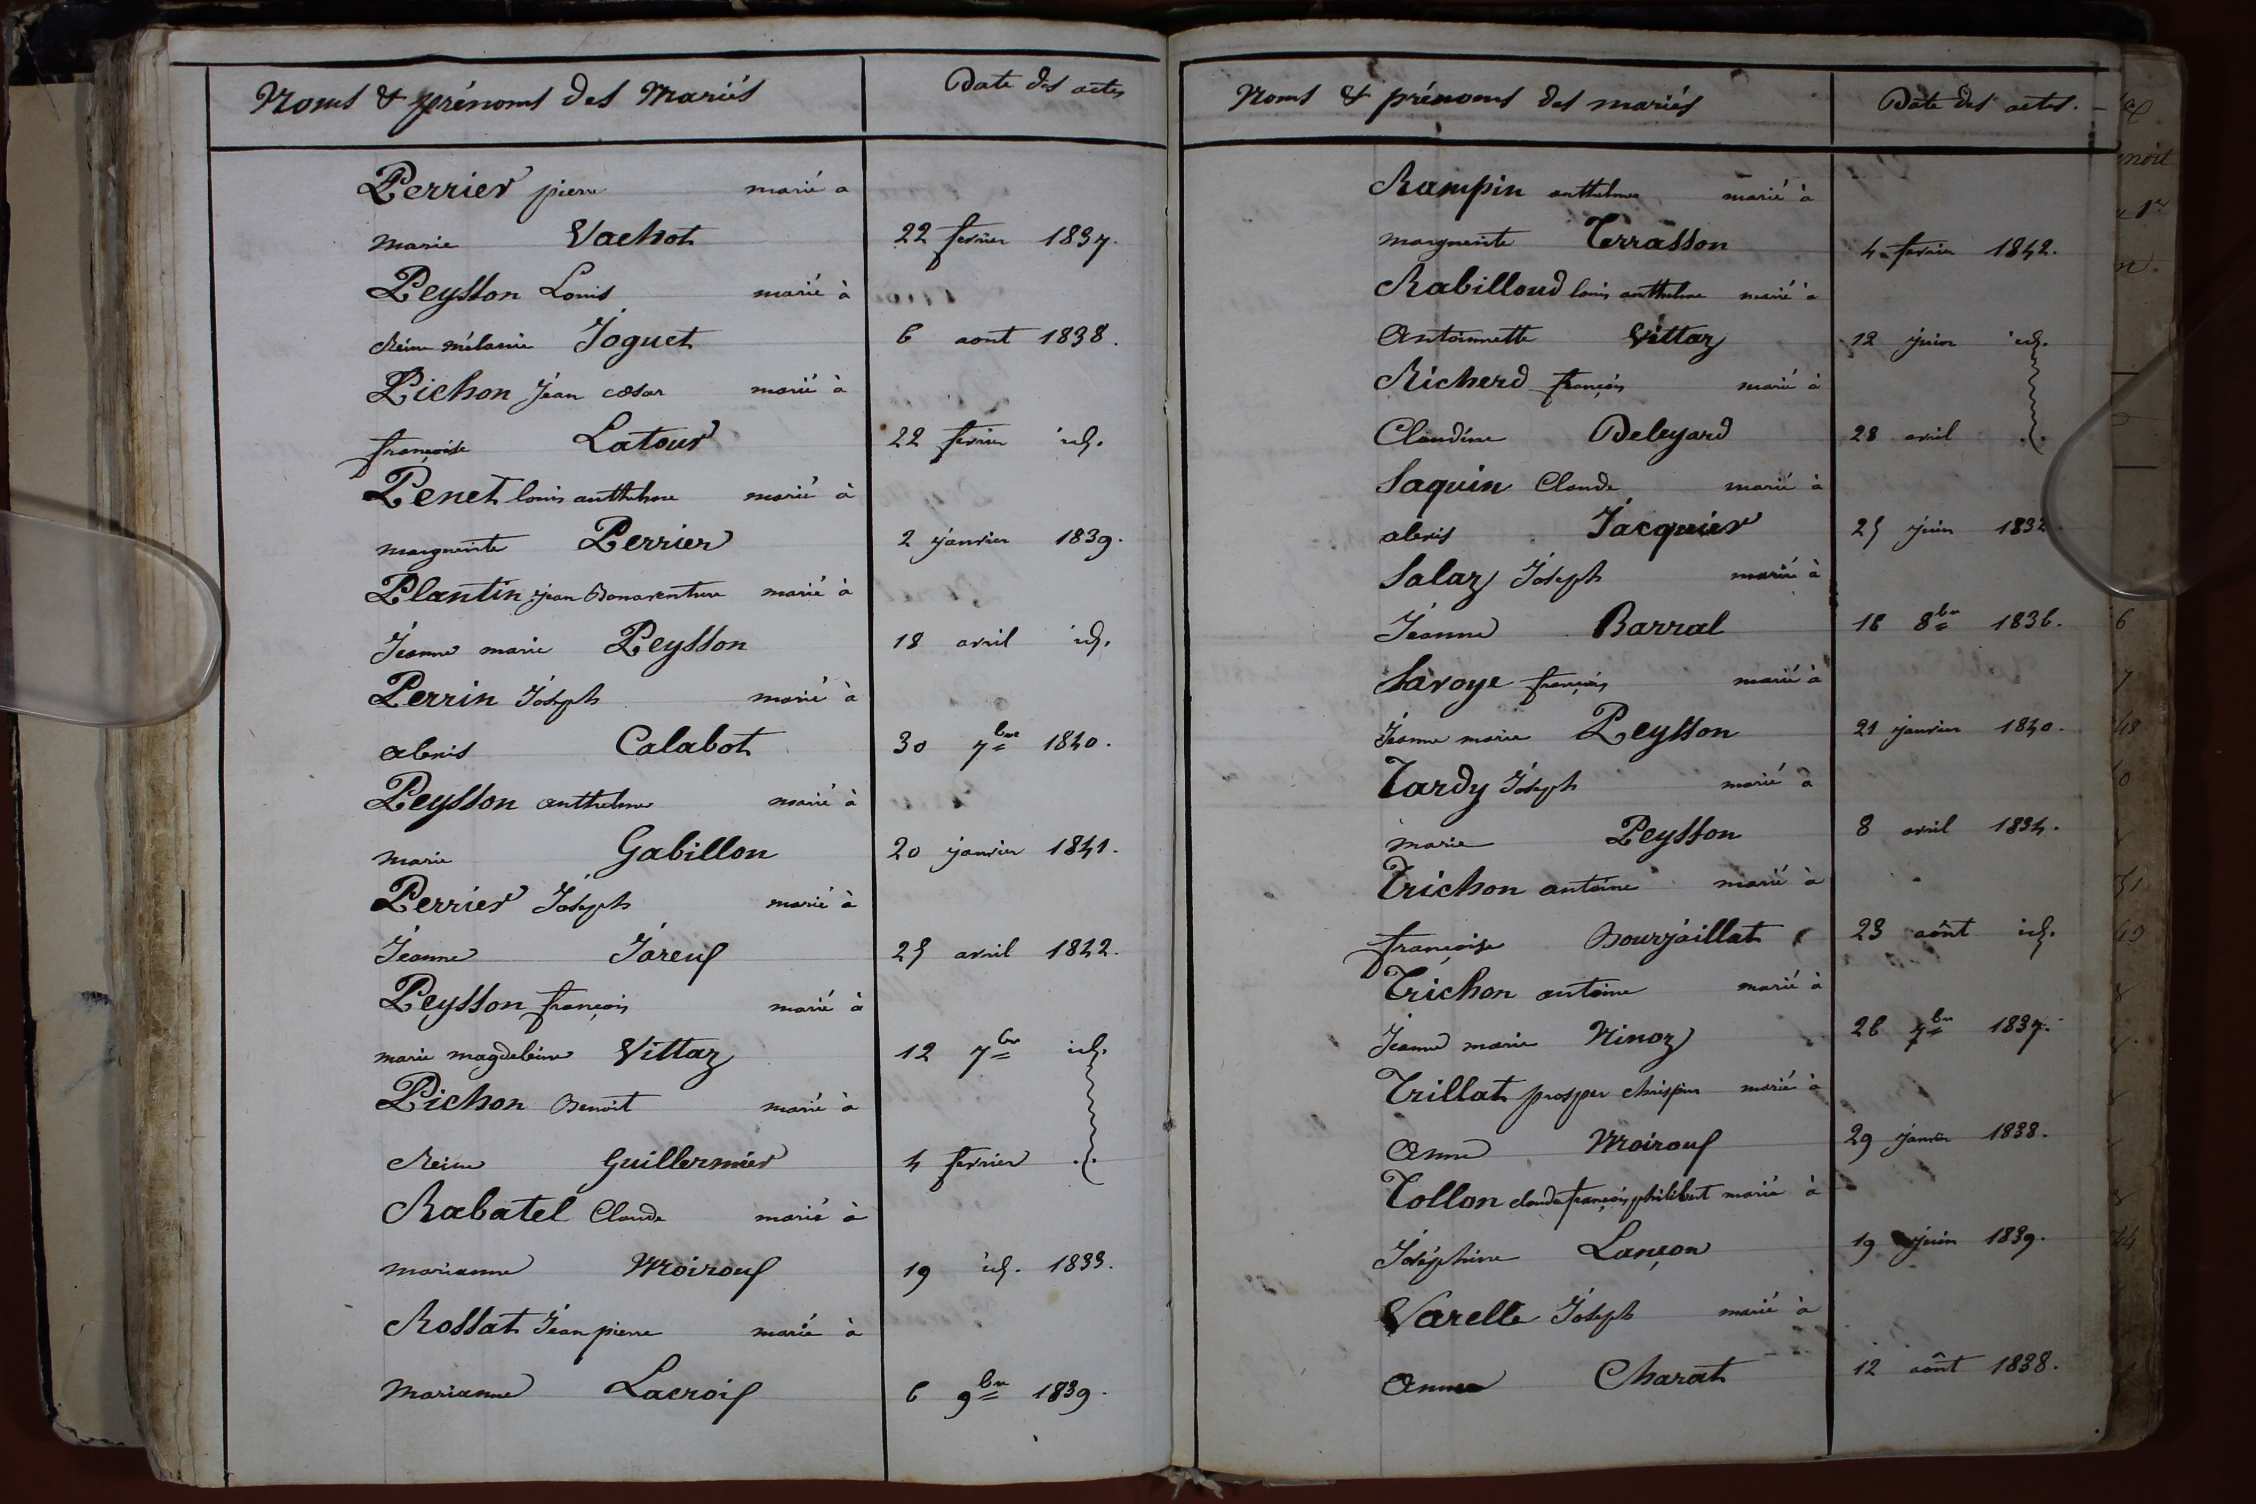 Noms & prénoms des Mariés Date des actes
Perrier pierre marié a
marie Vachot 22 fevrier 1837.
Peysson Louis marié à
Reine mélanie Joguet 6 aout 1838.
Pichon Jean césar marié à
françoise Latour 22 fevrier id.
Penet louis anthelme marié à
marguerite Perrier 2 janvier 1839.
Plantin jean Bonaventure marié à
Jeanne marie Peysson 18 avril id.
Perrin Joseph marié à
alexis Calabot 30 7bre 1840.
Peysson anthelme marié à
marie Gabillon 20 janvier 1841.
Perrier Joseph marié à
Jeanne Jareux 25 avril 1842.
Peysson françois marié à
marie magdeleine Vittaz 12 7bre id.
Pichon Benoit marié à
Reine Guillermier 4 fevrier
Rabatel Claude marié à
marianne Moiroux 19 id. 1833.
Rossat Jean pierre marié à
Marianne Lacroix 6 9bre 1839.
Noms & prénoms des mariés Date des actes.
Rampin anthelme marié à
marguerite Terrasson 4 fevrier 1842.
Rabilloud louis anthelme marié à
Antoinnette Vittaz 12 juin id.
Richerd françois marié à
Claudine Deleyard 28 avril
Saquin Claude marié à
alexis Jacquier 25 juin 1832.
Salaz Joseph marié à
Jeanne Barral 18 8bre 1836.
Savoye françois marié à
Jeanne marie Peysson 21 janvier 1840.
Tardy Joseph marié à
marie Peysson 8 avril 1834.
Trichon antoine marié à
françoise Bourjaillat 23 aôut id.
Trichon antoine marié à
Jeanne marie Ninoz 26 7bre 1837.
Trillat prosper chrispin marié à
Anne Moiroux 29 janvier 1838.
Tollon claude françois philibert marié à
Joséphine Lançon 19 juin 1839.
Varelle Joseph marié à
Anne Charat 12 aôut 1838.